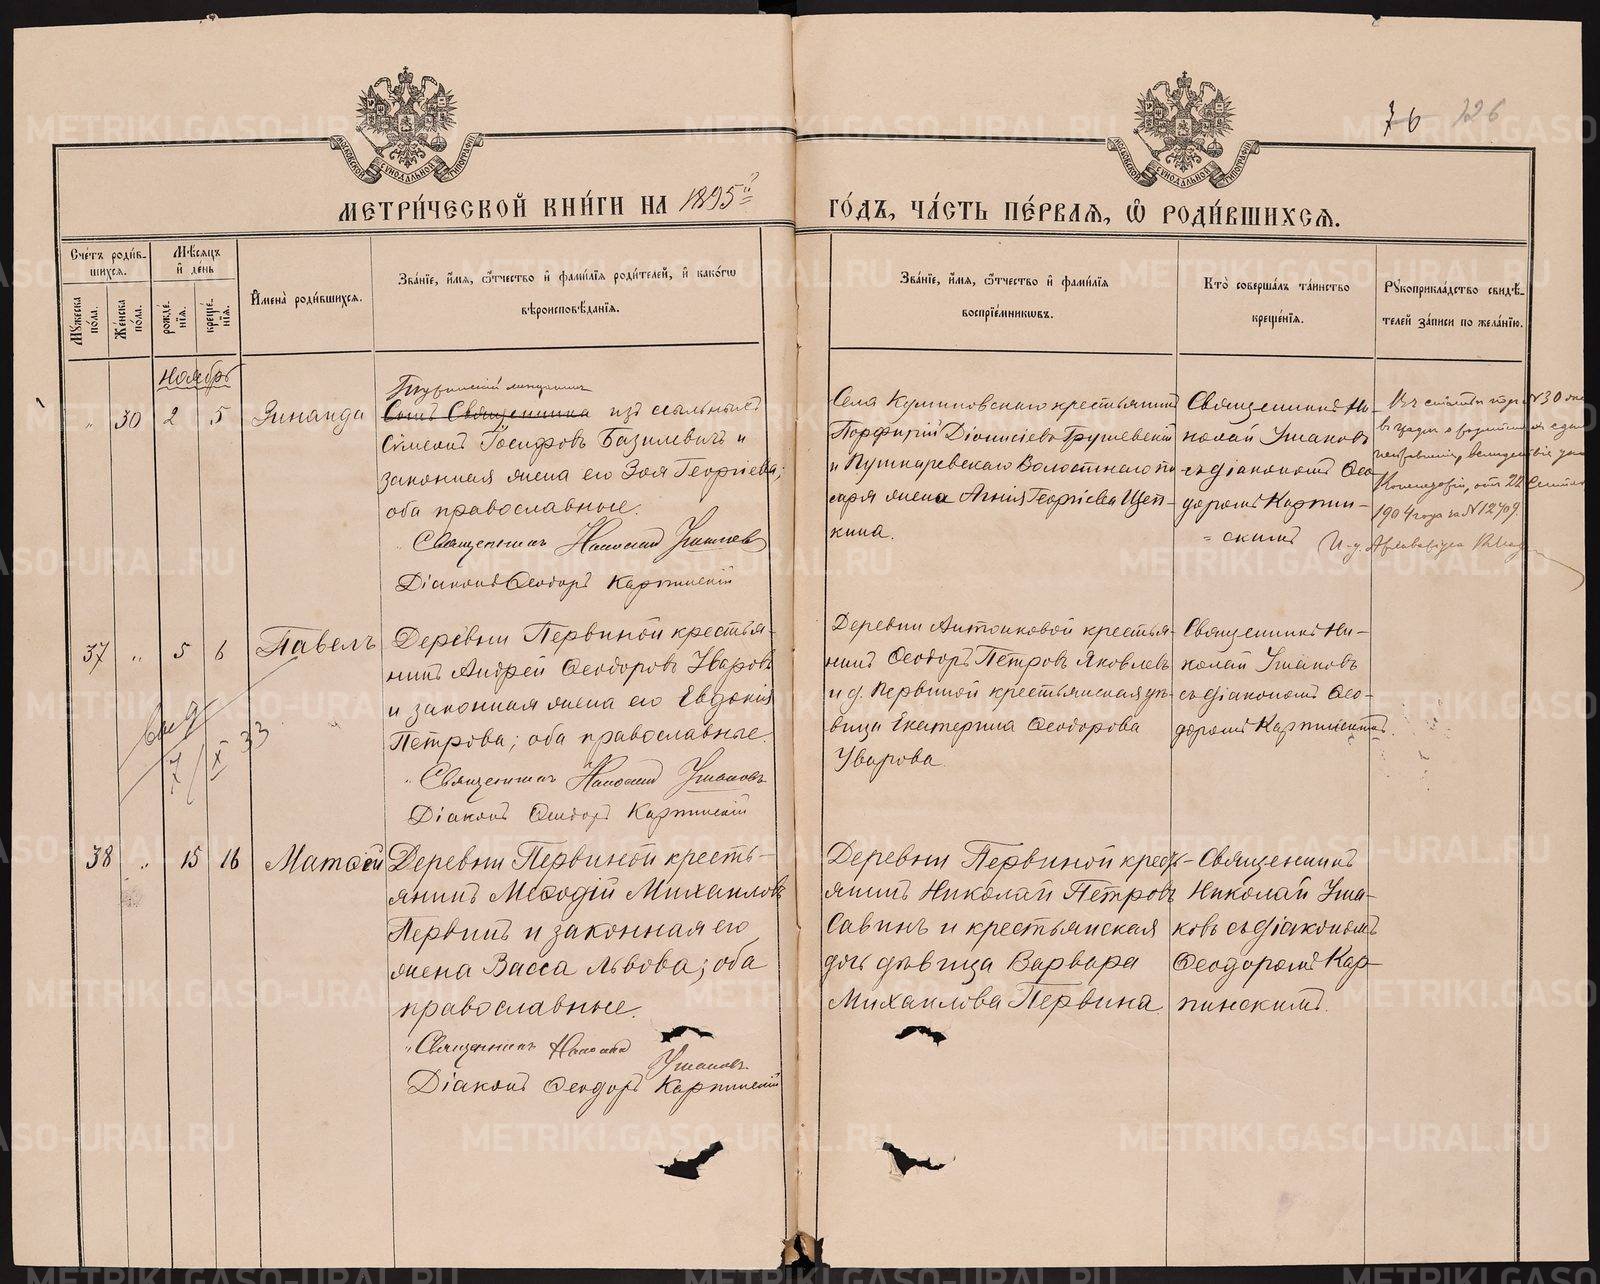 76 126
МОСКОВСКОЙ СѴНОДАЛЬНОЙ ТИПОГРАФІИ
МОСКОВСКОЙ СѴНОДАЛЬНОЙ ТИПОГРАФІИ
МЕТРИ́ЧЕСКОЙ КНИ́ГИ НА 1895й
ГО́ДЪ, ЧА́СТЬ ПЕ́РВАЯ, Ѽ РОДИ́ВШИХСЯ.
Сче́тъ роди́в-
шихся.
Мѣ́сяцъ
и҆ де́нь
Мꙋжеска
по́ла.
Же́нска
по́ла.
рожде́-
нїя.
креще́-
нїя.
И҆мена̀ роди́вшихся.
Зва́нїе, и҆́мя, ѻ҆́тчество и҆ фами́лїя роди́телей, и҆ како́гѡ
вѣроисповѣ́данїя.
Зва́нїе, и҆́мя, ѻ҆́тчество и҆ фами́лїя
воспрїе́мникѡвъ.
Кто̀ соверша́лъ та́инство
креще́нїя.
Рꙋкоприкла́дство свидѣ́-
телей за́писи по жела́нїю.
Ноябрь
" 30 2 5 Зинаида
Туринскій мещанинъ
Сынъ Священника изъ ссыльныхъ
Сѵмеонъ Іосифовъ Базилевичъ и
законная жена его Зоя Георгіева;
оба православные.
Священникъ Николай Ушаковъ
Діаконъ Ѳеодоръ Карпинскій
Села Куминовскаго крестьянинъ
Порфирій Діонисіевъ Грушевскій
и Пушкаревскаго Волостнаго пи
саря жена Агнія Георгіева Щеп-
кина.
Священникъ Ни-
колай Ушаковъ
съ діакономъ Ѳео-
доромъ Карпин-
скимъ
Въ статьи подъ №30
Консисторіи, отъ 22 Сентяб
1904 года за №12709.
37 " 5 6 Павелъ
Деревни Первиной крестья-
нинъ Андрей Ѳеодоровъ Уваровъ
и законная жена его Евдокія
Петрова; оба православные.
Священникъ Николай Ушаковъ
Діаконъ Ѳеодоръ Карпинскій
Деревни Антоновой крестья-
нинъ Ѳеодоръ Петровъ Яковлевъ
и д. Первиной крестьянская дѣ-
вица Екатерина Ѳеодорова
Уварова.
Священникъ Ни-
колай Ушаковъ
съ діакономъ Ѳео-
доромъ Карпинскимъ.
7/X 33
38 " 15 16 Матѳей
Деревни Первиной кресть-
янинъ Меѳодій Михаиловъ
Первинъ и законная его
жена Васса Львова; оба
православные.
Священникъ Николай
Ушаковъ
Діаконъ Ѳеодоръ Карпинскій
Деревни Первиной кресть-
янинъ Николай Петровъ
Савинъ и крестьянская
дочь дѣвица Варвара
Михаилова Первина.
Священникъ
Николай Уша-
ковъ съ діакономъ
Ѳеодоромъ Кар-
пинскимъ.
METRIKI.GASO-URAL.RU